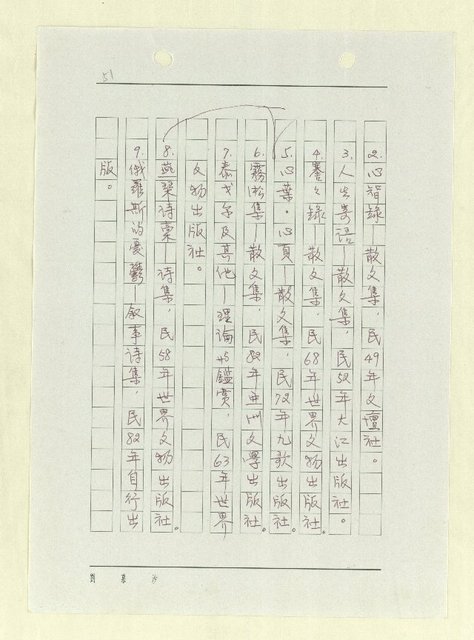 51
2.心智錄—散文集，民49年文壇社。
3.人生寄語—散文集，民52年大江出版社。
4.養心錄—散文集，民68年世界文物出版社。
5.心葉。心頁—散文集，民72年九歌出版社。
6.霧淞集—散文集，民82年亞洲文學出版社。
7.泰戈爾及其他—理論與鑑賞，民63年世界
文物出版社。
8.燕築詩藁—詩集，民58年世界文物出版社。
9.俄羅斯的憂鬱—敘事詩集，民82年自行出
版。
劉慕沙